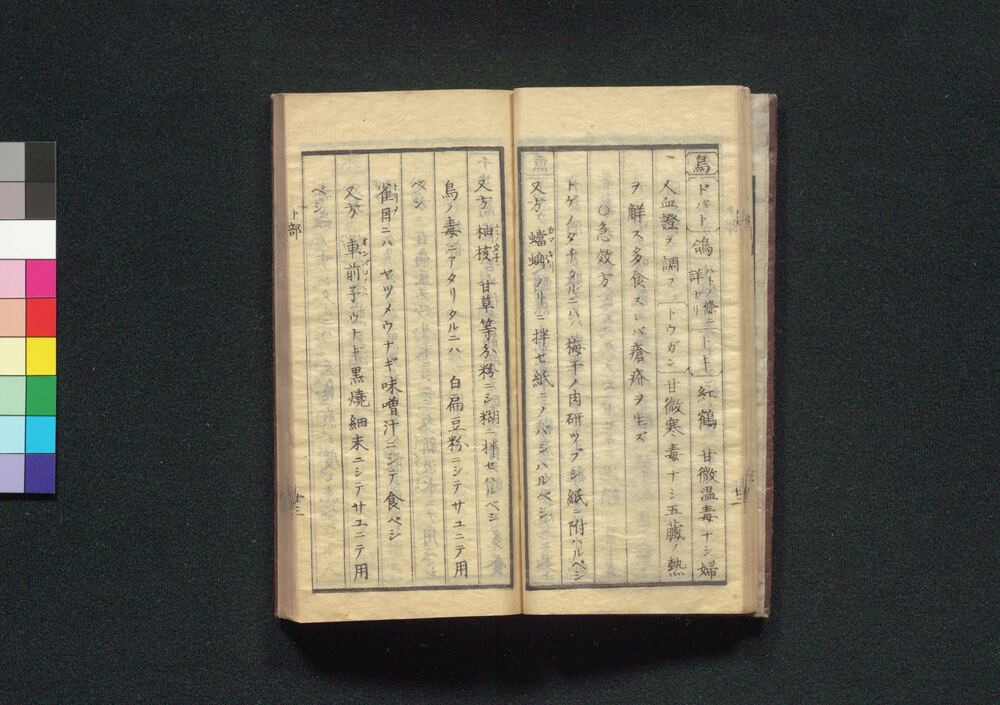 鳥 ドバト 鴿 ハトノ條ニ詳ナリ トキ 紅鶴 甘微温毒ナシ婦
人血證ヲ調フ トウガン 甘微寒毒ナシ五臓ノ熱
ヲ解ス多食スレバ瘡疥ヲ生ズ
○急效方
トゲノタチタルニハ 梅干ノ肉研ツブシ紙ニ附ハルベシ
又方 蟷螂 カマキリ ノリニ拌セ紙ニノバシハルベシ
又方 柚核 甘草等分粉ニシ糊ニ拌セハルベシ
鳥ノ毒ニアタリタルニハ 白扁豆粉ニシテサユニテ用
ベシ
雀目 トリメ ニハ ヤツメウナギ味噌汁ニシテ食ベシ
又方 車前子 ウナギ黒燒細末ニシテサユニテ用
ベシ
ト部
廿二
廿三